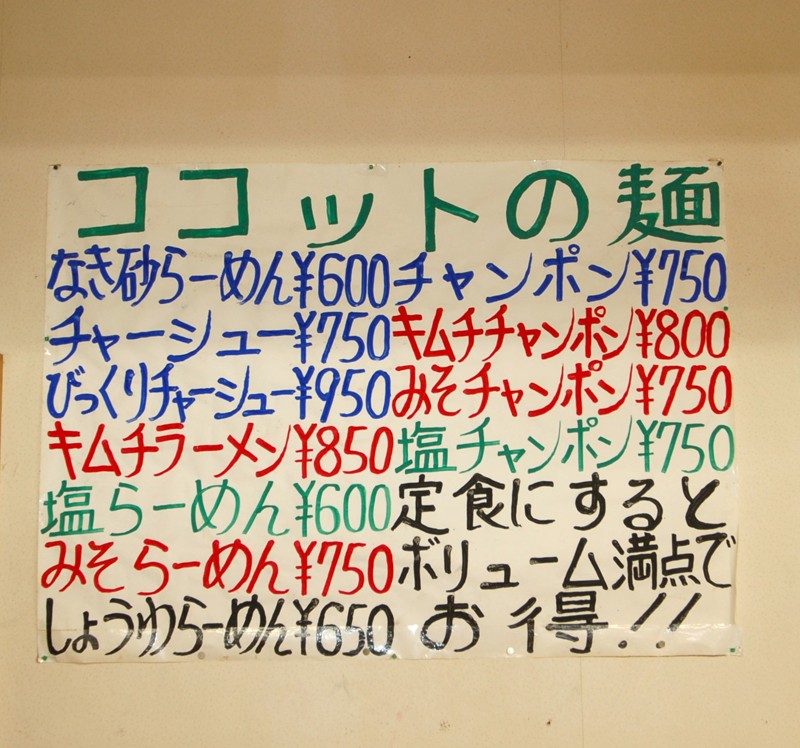 ココットの麺
なき砂らーめん¥600
チャーシュー¥750
びっくりチャーシュー¥950
キムチラーメン¥850
塩らーめん¥600
みそらーめん¥750
しょうゆらーめん¥650
チャンポン¥750
キムチチャンポン¥800
みそチャンポン¥750
塩チャンポン¥750
定食にすると
ボリューム満点で
お得!!